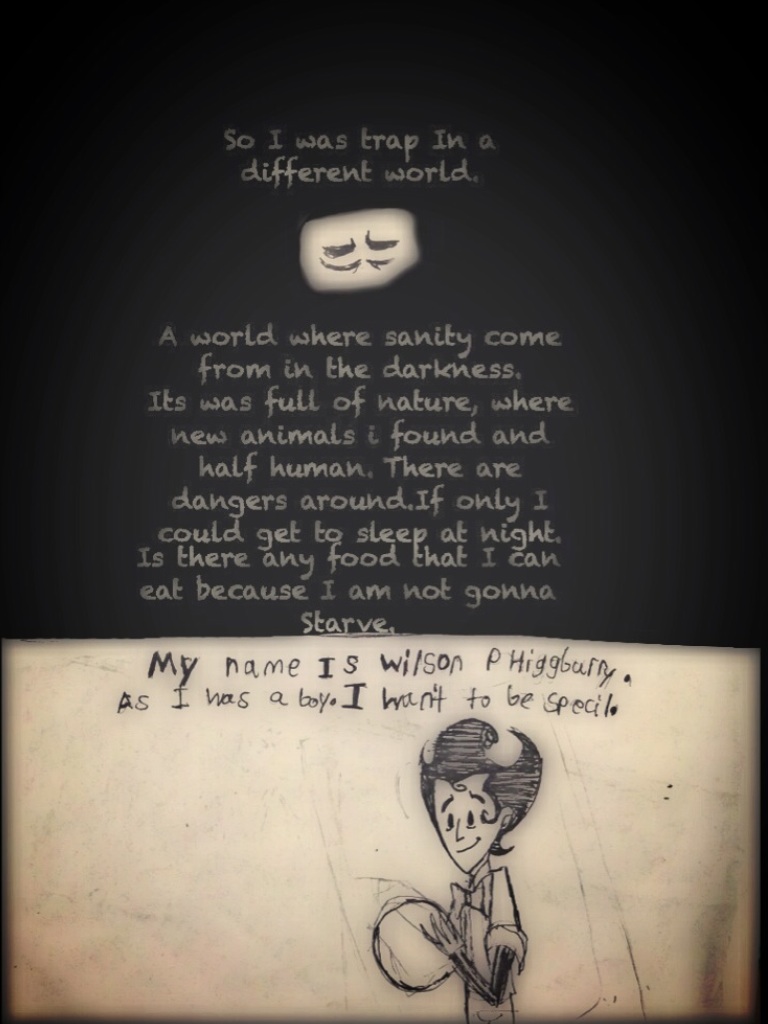 So I was trap In a
different world.
A world where sanity come
from in the darkness.
Its was full of nature, where
new animals i found and
half human. There are
dangers around.If only I
could get to sleep at night.
Is there any food that I can
eat because I am not gonna
Starve.
My name Is Wilson P Higgburry.
As I was a boy. I want to be specil.